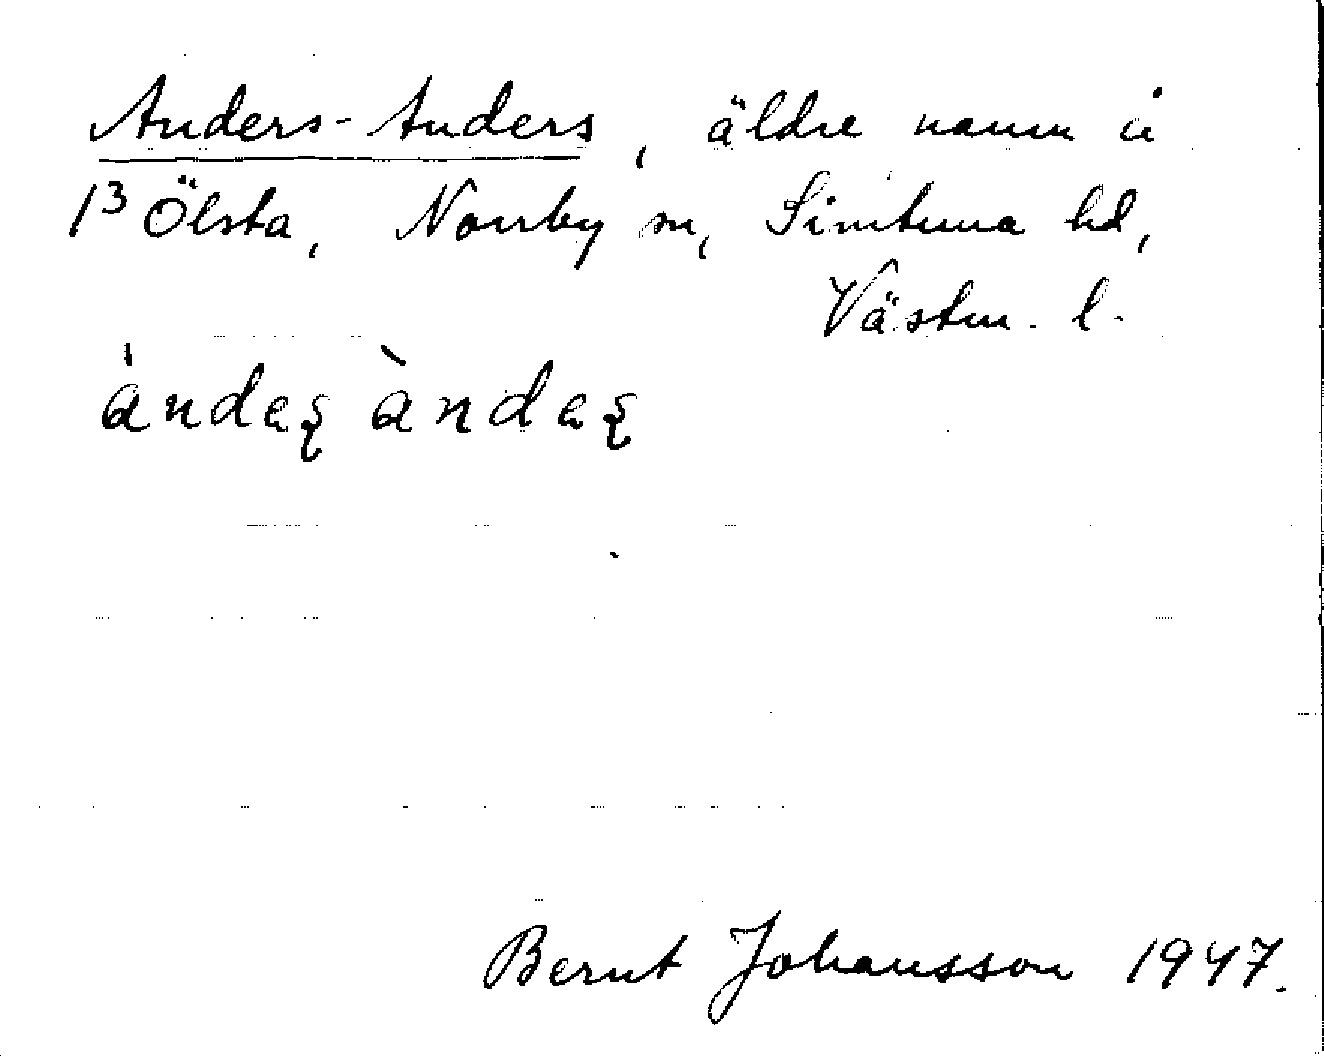 Anders-Anders, äldre namn å
1³ Ölsta, Norrby sn, Simtuna hd,
Västm. l.
àndaʂ àndaʂ
Bernt Johansson 1947.